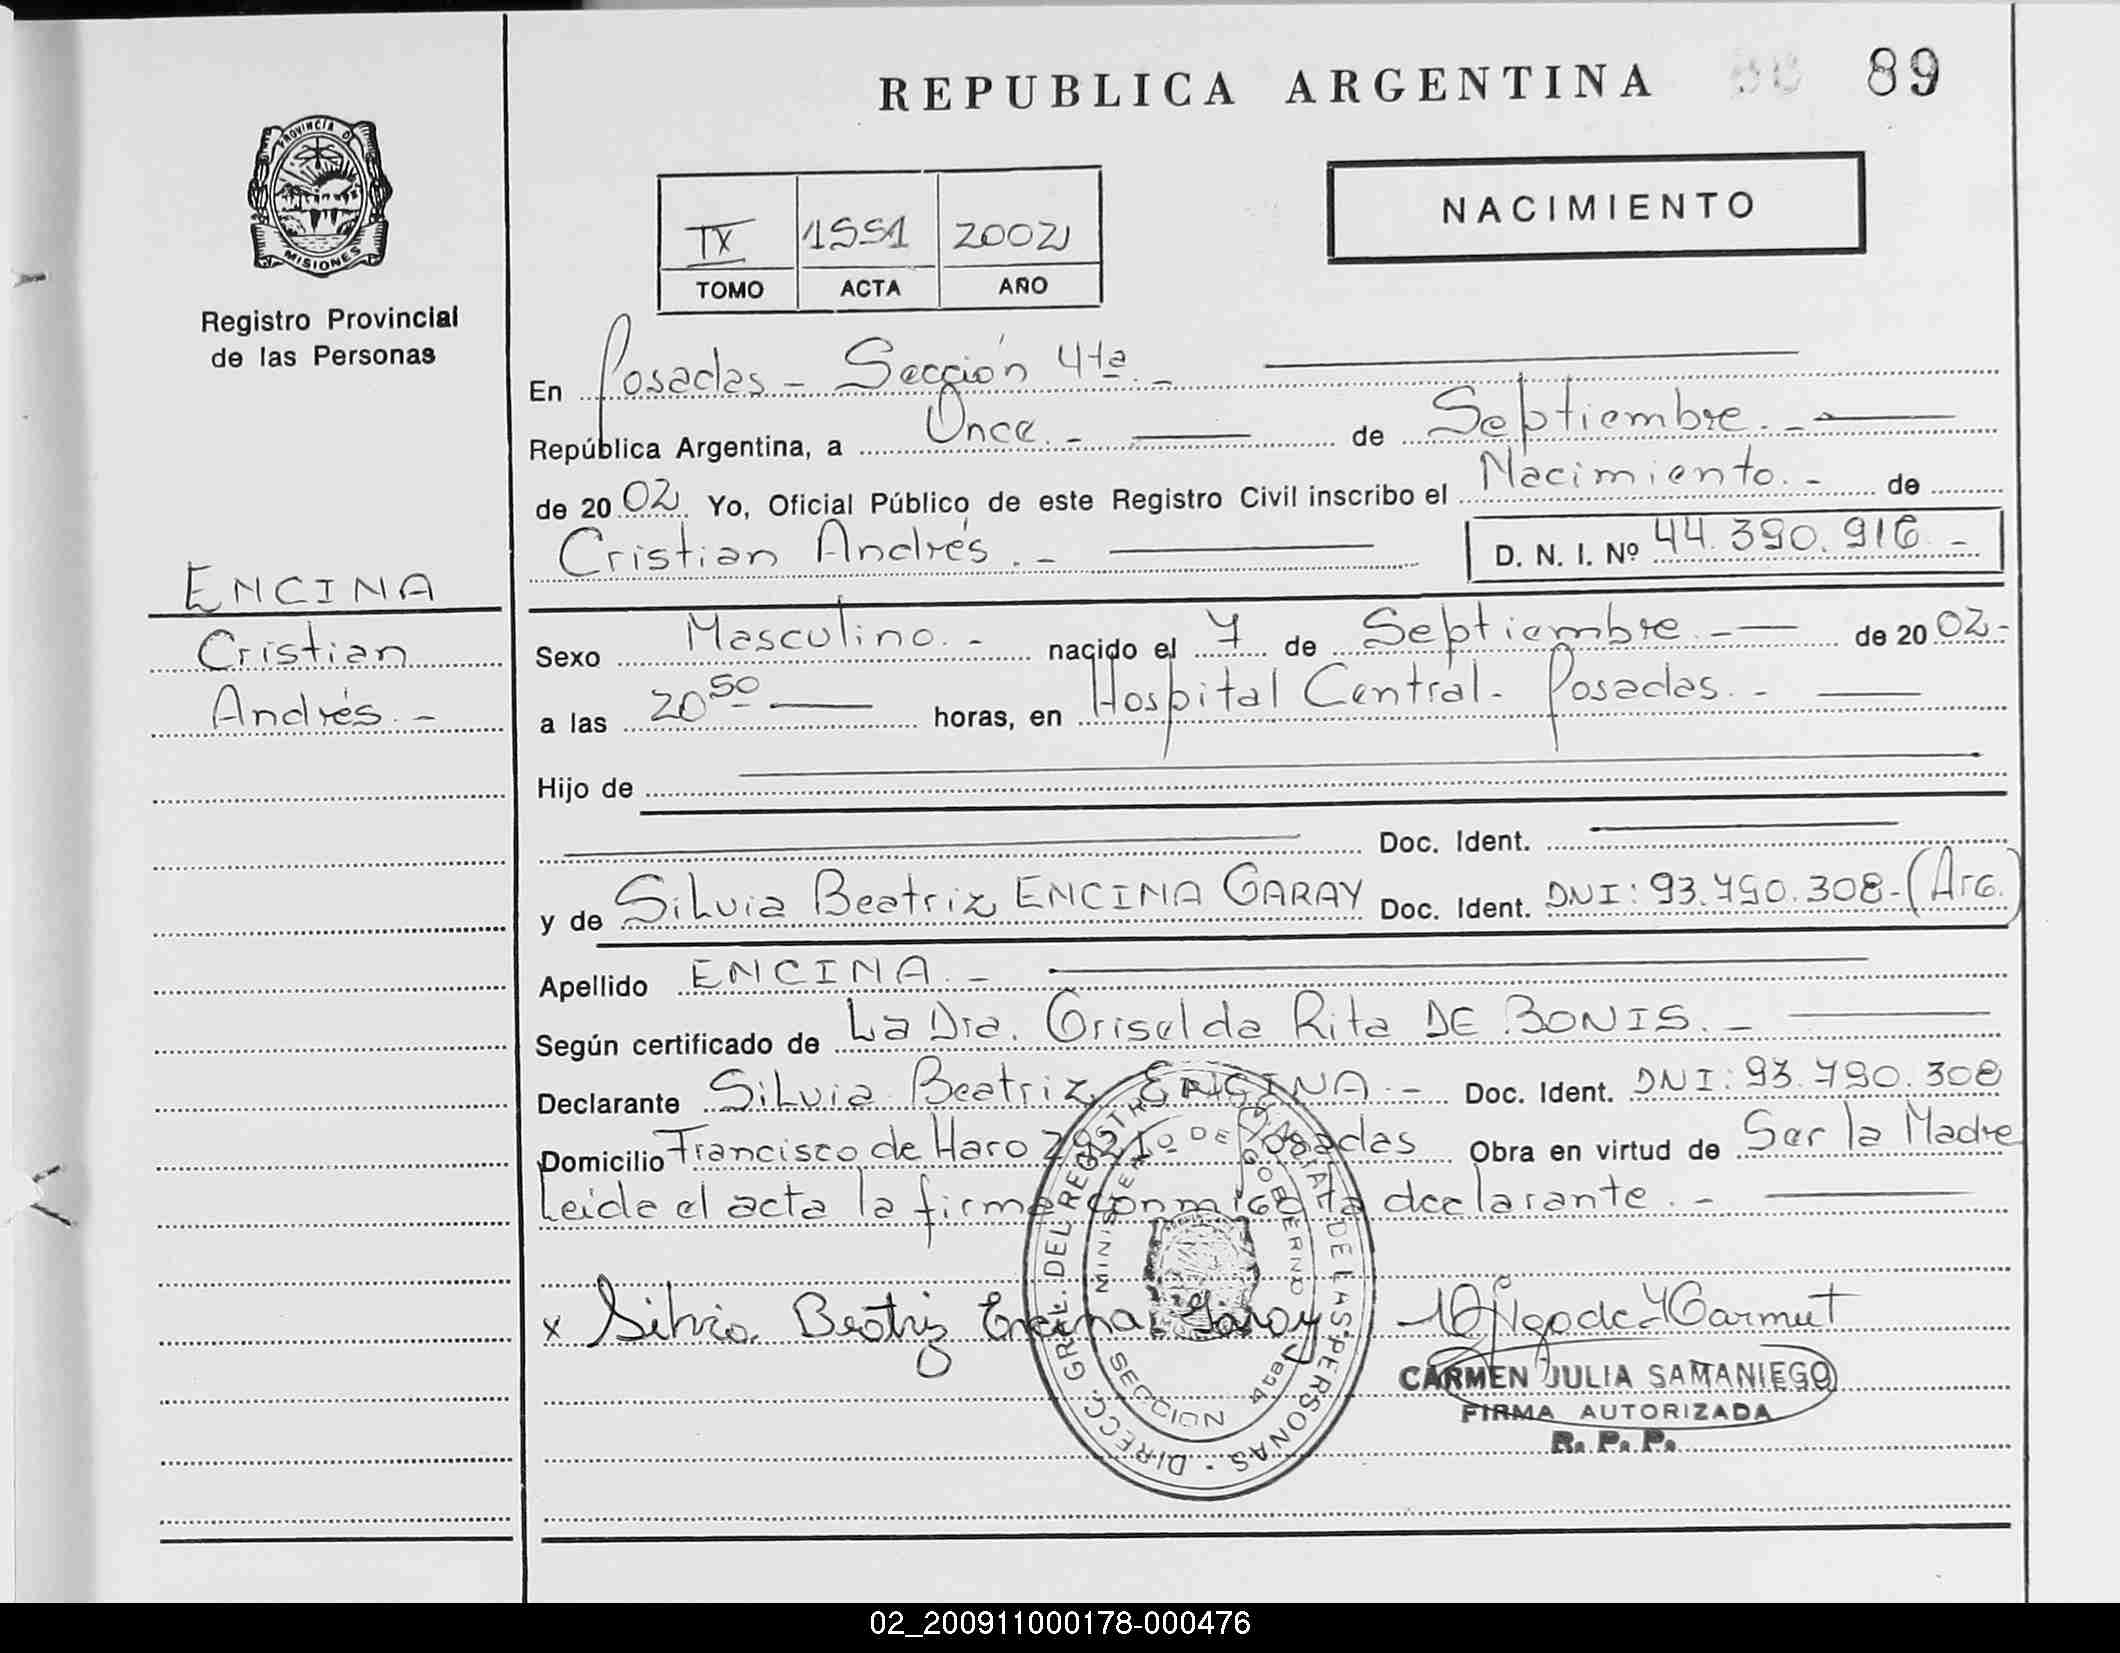 REPUBLICA ARGENTINA 89
PROVINCIA DE
MISIONES
Registro Provincial
de las Personas
NACIMIENTO
IX 1551 2002
TOMO ACTA AÑO
En Posadas - Sección 4ta. -
República Argentina, a Once. - de Septiembre. -
de 20 02 Yo, Oficial Público de este Registro Civil inscribo el Nacimiento. - de
Cristian Andrés. - D. N. I. Nº 44.390.916 -
ENCINA
Cristian
Andrés. -
Sexo Masculino. - nacido el 7 de Septiembre. - de 20 02 -
a las 20 50 horas, en Hospital Central - Posadas. -
Hijo de
Doc. Ident.
y de Silvia Beatriz ENCINA GARAY Doc. Ident. DNI: 93.790.308 - (Arg.)
Apellido ENCINA. -
Según certificado de La Dra. Griselda Rita DE BONIS. -
Declarante Silvia Beatriz ENCINA. - Doc. Ident. DNI: 93.790.308
Domicilio Francisco de Haro Posadas Obra en virtud de Ser la Madre
Leida el acta la firma conmigo la declarante. -
x Silvia Beatriz Encina Garay
DIRECC. GRAL. DEL REGISTRO DE LAS PERSONAS
MINISTERIO DE GOBIERNO
SECCION 4ta
CARMEN JULIA SAMANIEGO
FIRMA AUTORIZADA
R. P. P.
02_200911000178-000476